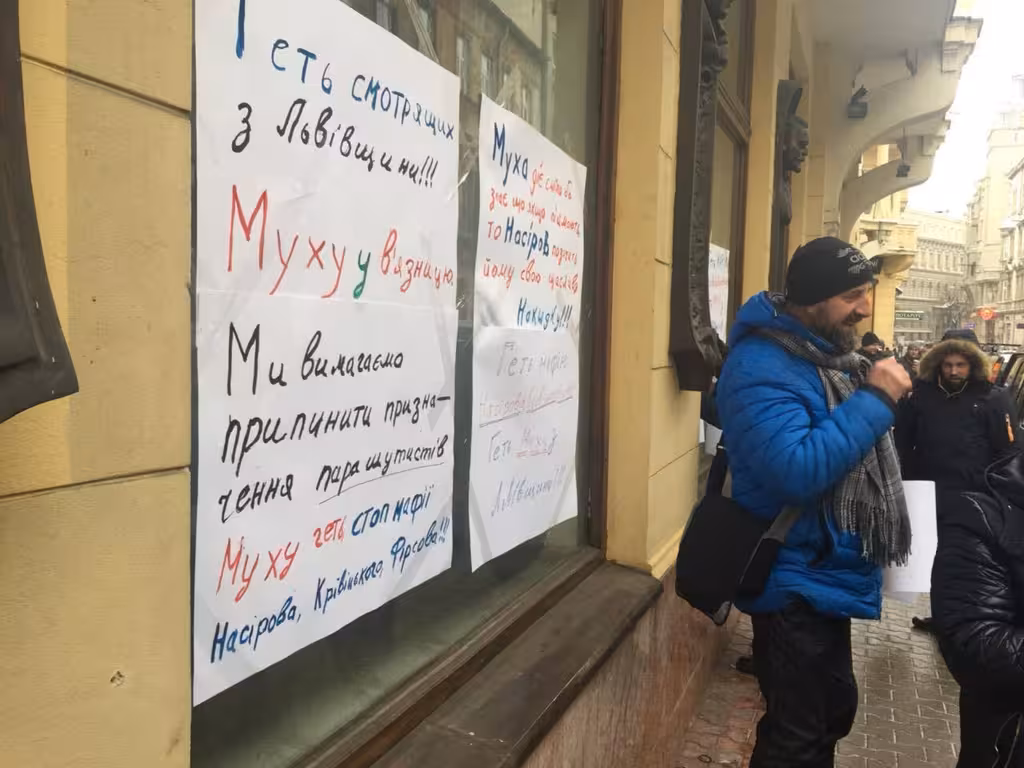 Геть смотрящих
з Львівщини!!!
Муху у в'язницю
Ми вимагаємо
припинити призна-
чення парашутистів
Муху геть стоп мафії
Насірова, Крівіцького, Фірсова!!!
Муха
знає що якщо
то Насіров
йому свою
Накидку!!!
Геть мафію
Геть Муху з
Львівщини!!!